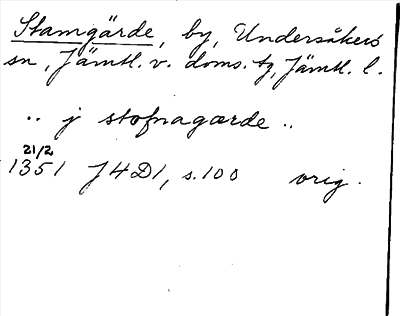 Stamgärde, by, Undersåkers
sn, Jämtl. v. doms. tg, Jämtl. l.
.. j stofnagarde ..
21/2
1351 JHD1, s. 100 orig.